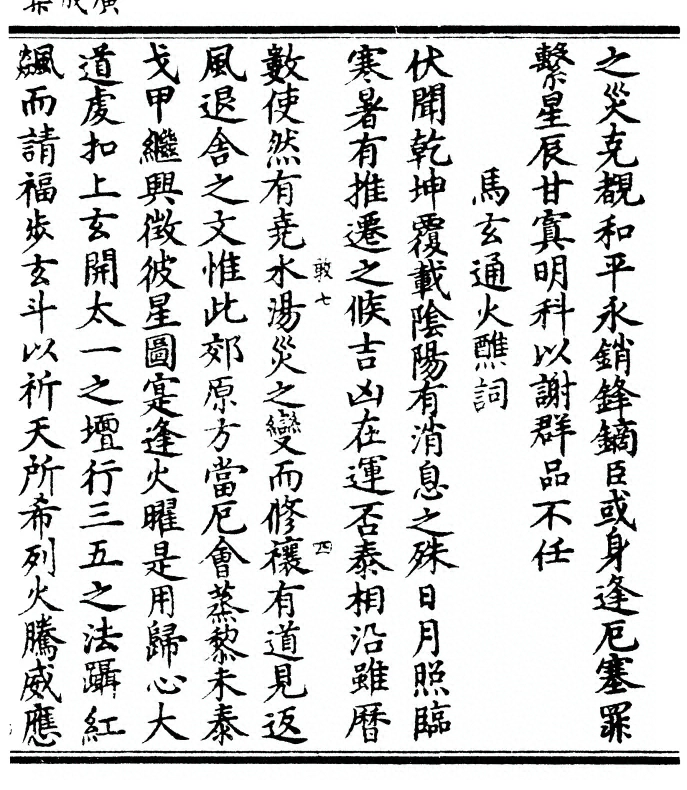 之災克覩和平永銷鋒鏑臣或身逢厄塞罪
繫星辰甘寘明科以謝群品不任
馬玄通火醮詞
伏聞乾坤覆載陰陽有消息之殊日月照臨
寒暑有推遷之候吉凶在運否泰相沿雖曆
敢七
四
數使然有堯水湯災之變而修禳有道見返
風退舍之文惟此郊原方當厄會蒸黎未泰
戈甲繼興徵彼星圖寔逢火曜是用歸心大
道虔扣上玄開太一之壇行三五之法躡紅
飇而請福步玄斗以祈天所希列火騰威應